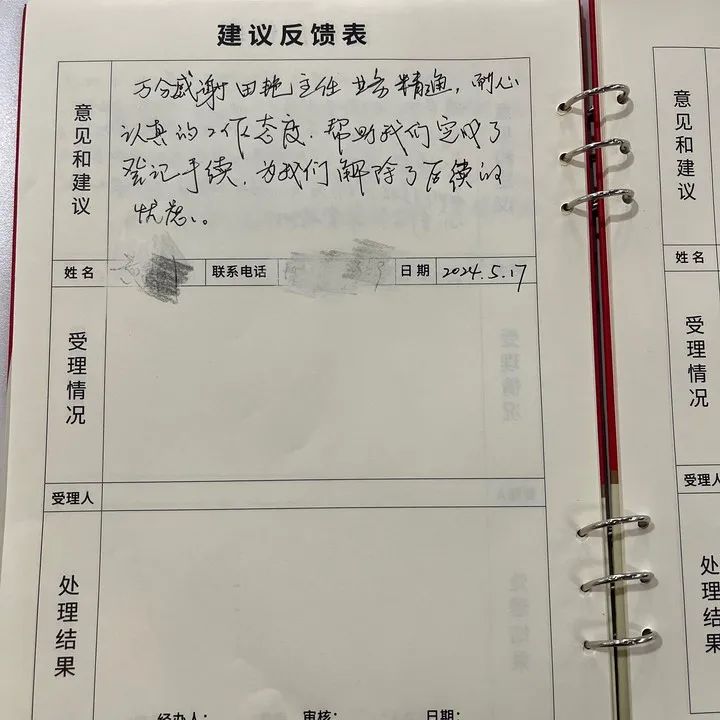 建议反馈表
意见和建议
万分感谢田艳主任业务精通，耐心
认真的工作态度.帮助我们完成了
登记手续.为我们解除了后续的
忧虑。
姓名
联系电话
日期 2024.5.17
受理情况
受理人
处理结果
经办人：
审核：
日期：
意见和建议
姓名
受理情况
受理人
处理结果